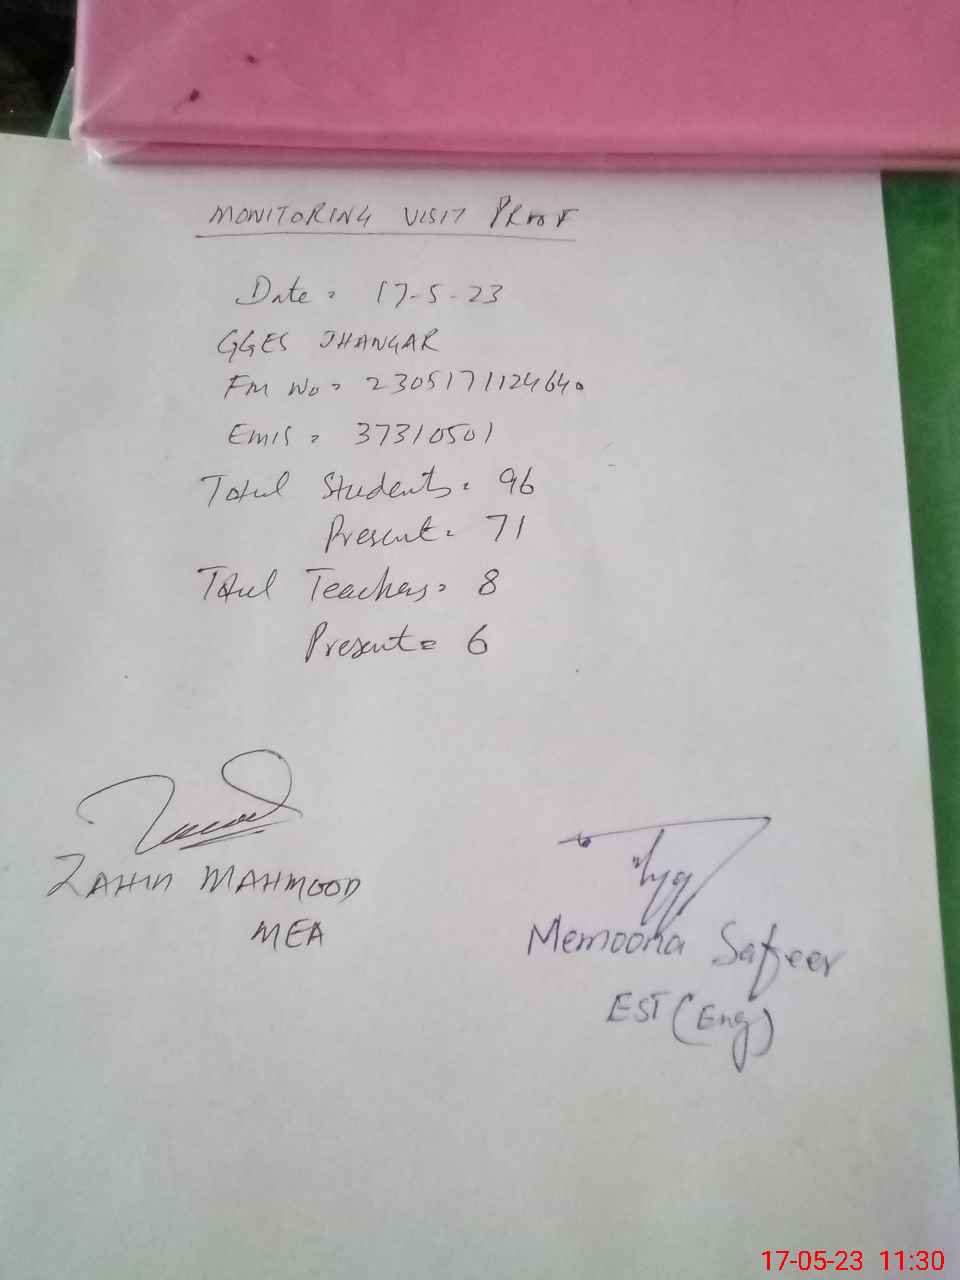 MONITORING VISIT PROOF
Date = 17-5-23
GGES JHANGAR
FM No = 2305171124640
Emis = 37310501
Total Students = 96
Present = 71
Total Teachers = 8
Present = 6
MAHMOOD
MEA
Memoona Safeer
EST (Eng)
17-05-23 11:30